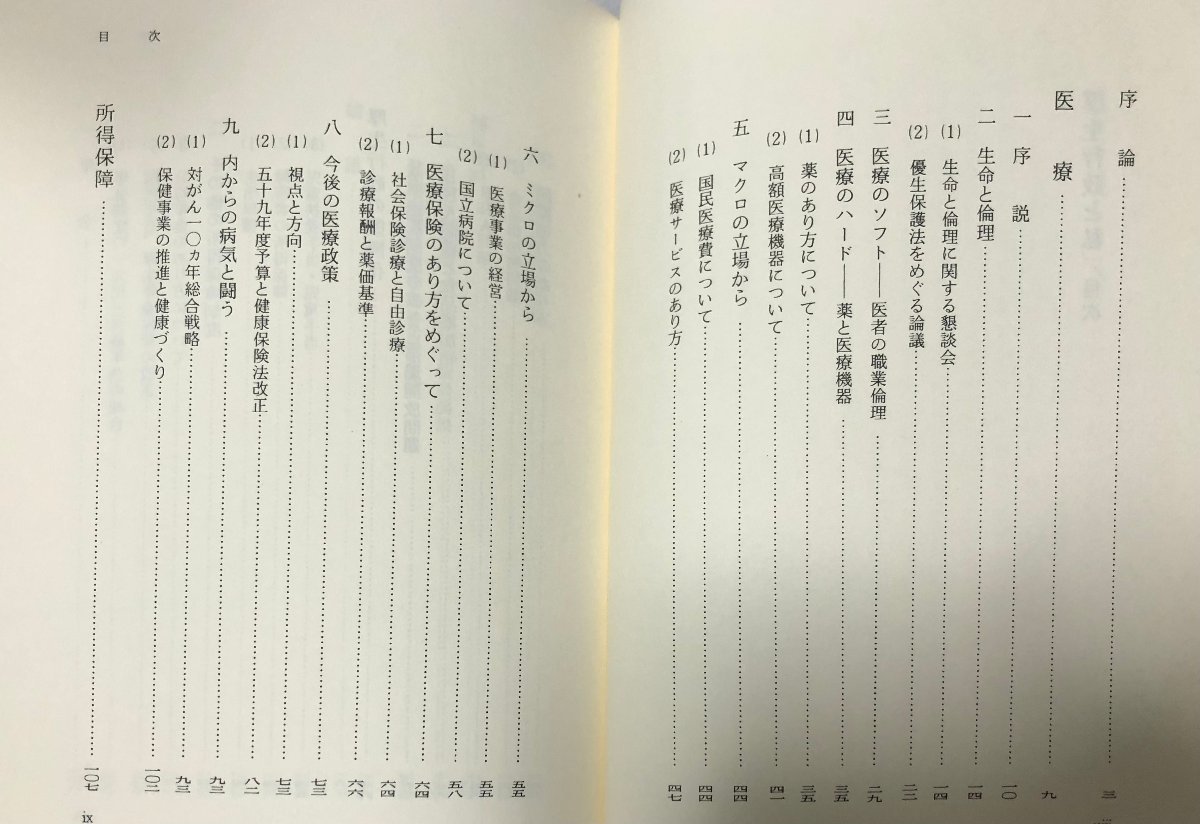 序論……三
医療……九
一 序説……一〇
二 生命と倫理……一四
(1) 生命と倫理に関する懇談会……一四
(2) 優生保護法をめぐる論議……二三
三 医療のソフト――医者の職業倫理……二九
四 医療のハード――薬と医療機器……三五
(1) 薬のあり方について……三五
(2) 高額医療機器について……四一
五 マクロの立場から……四四
(1) 国民医療費について……四四
(2) 医療サービスのあり方……四七
目次
六 ミクロの立場から……五五
(1) 医療事業の経営……五五
(2) 国立病院について……五八
七 医療保険のあり方をめぐって……六四
(1) 社会保険診療と自由診療……六四
(2) 診療報酬と薬価基準……六六
八 今後の医療政策……七三
(1) 視点と方向……七三
(2) 五十九年度予算と健康保険法改正……八二
九 内からの病気と闘う……九三
(1) 対がん一〇ヵ年総合戦略……九三
(2) 保健事業の推進と健康づくり……一〇二
所得保障……一〇七
ix